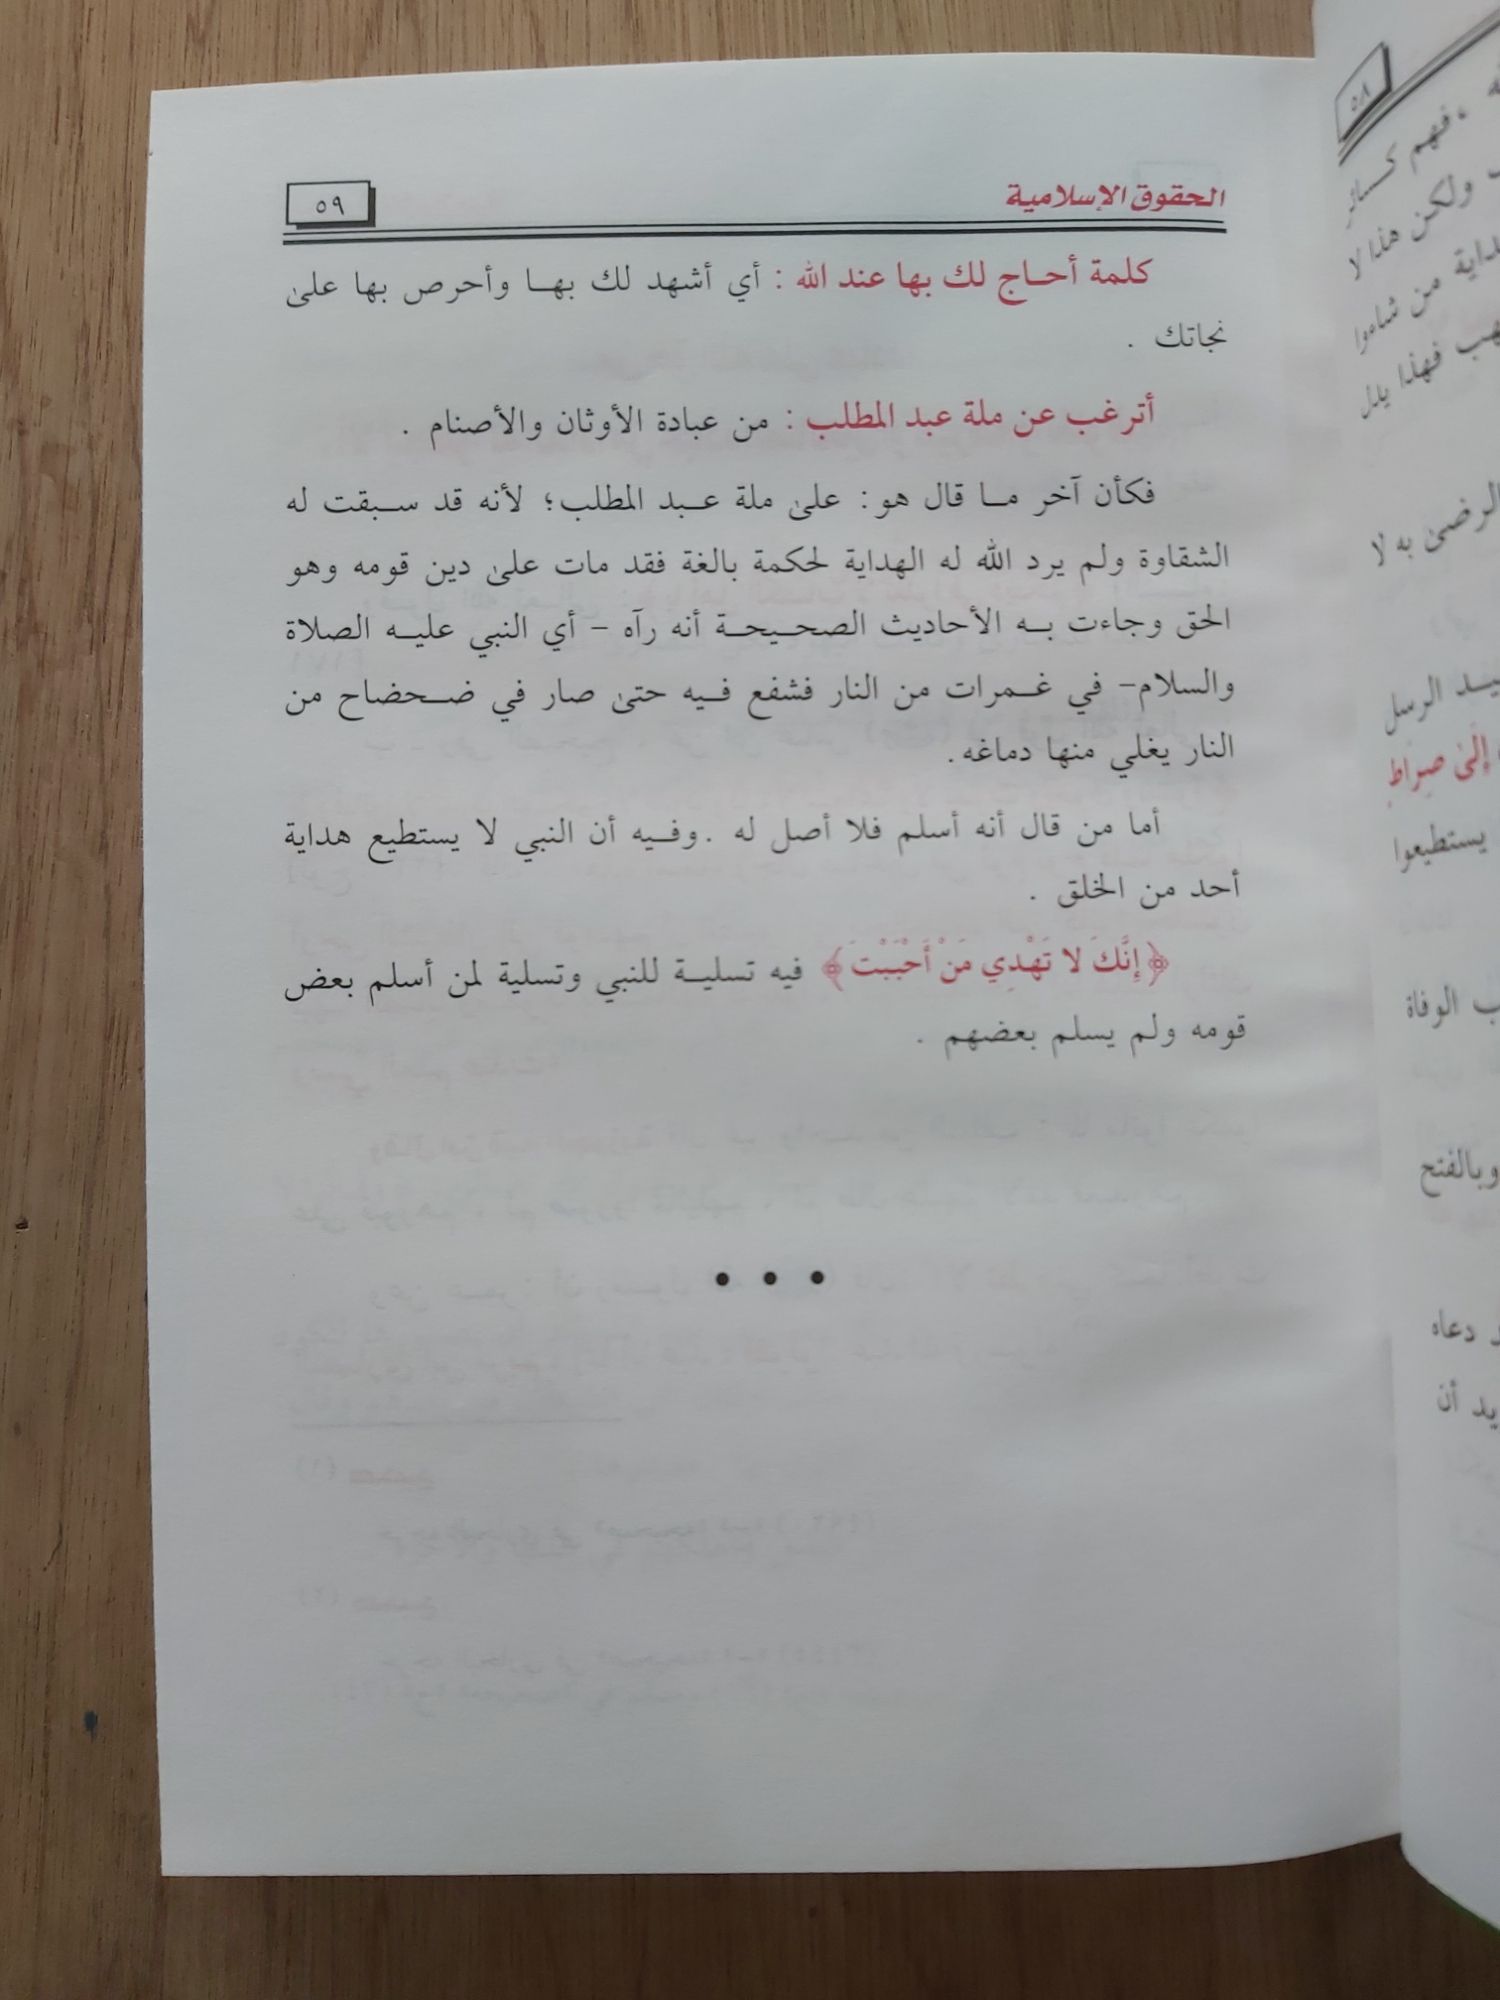 الحقوق الإسلامية
٥٩
كلمة أحاج لك بها عند الله : أي أشهد لك بها وأحرص بها على
نجاتك .
أترغب عن ملة عبد المطلب : من عبادة الأوثان والأصنام .
فكأن آخر ما قال هو : على ملة عبد المطلب؛ لأنه قد سبقت له
الشقاوة ولم يرد الله له الهداية لحكمة بالغة فقد مات على دين قومه وهو
الحق وجاءت به الأحاديث الصحيحة أنه رآه – أي النبي عليه الصلاة
والسلام– في غمرات من النار فشفع فيه حتى صار في ضحضاح من
النار يغلي منها دماغه.
أما من قال أنه أسلم فلا أصل له .وفيه أن النبي لا يستطيع هداية
أحد من الخلق .
﴿إِنَّكَ لا تَهْدِي مَنْ أَحْبَبْتَ﴾ فيه تسلية للنبي وتسلية لمن أسلم بعض
قومه ولم يسلم بعضهم .
٥٨
فهم كسائر
ولكن هذا لا
من شاءوا
فهذا يدل
الرضى به لا
الرسل
إلى صراط
يستطيعوا
الوفاة
وبالفتح
دعاه
أن